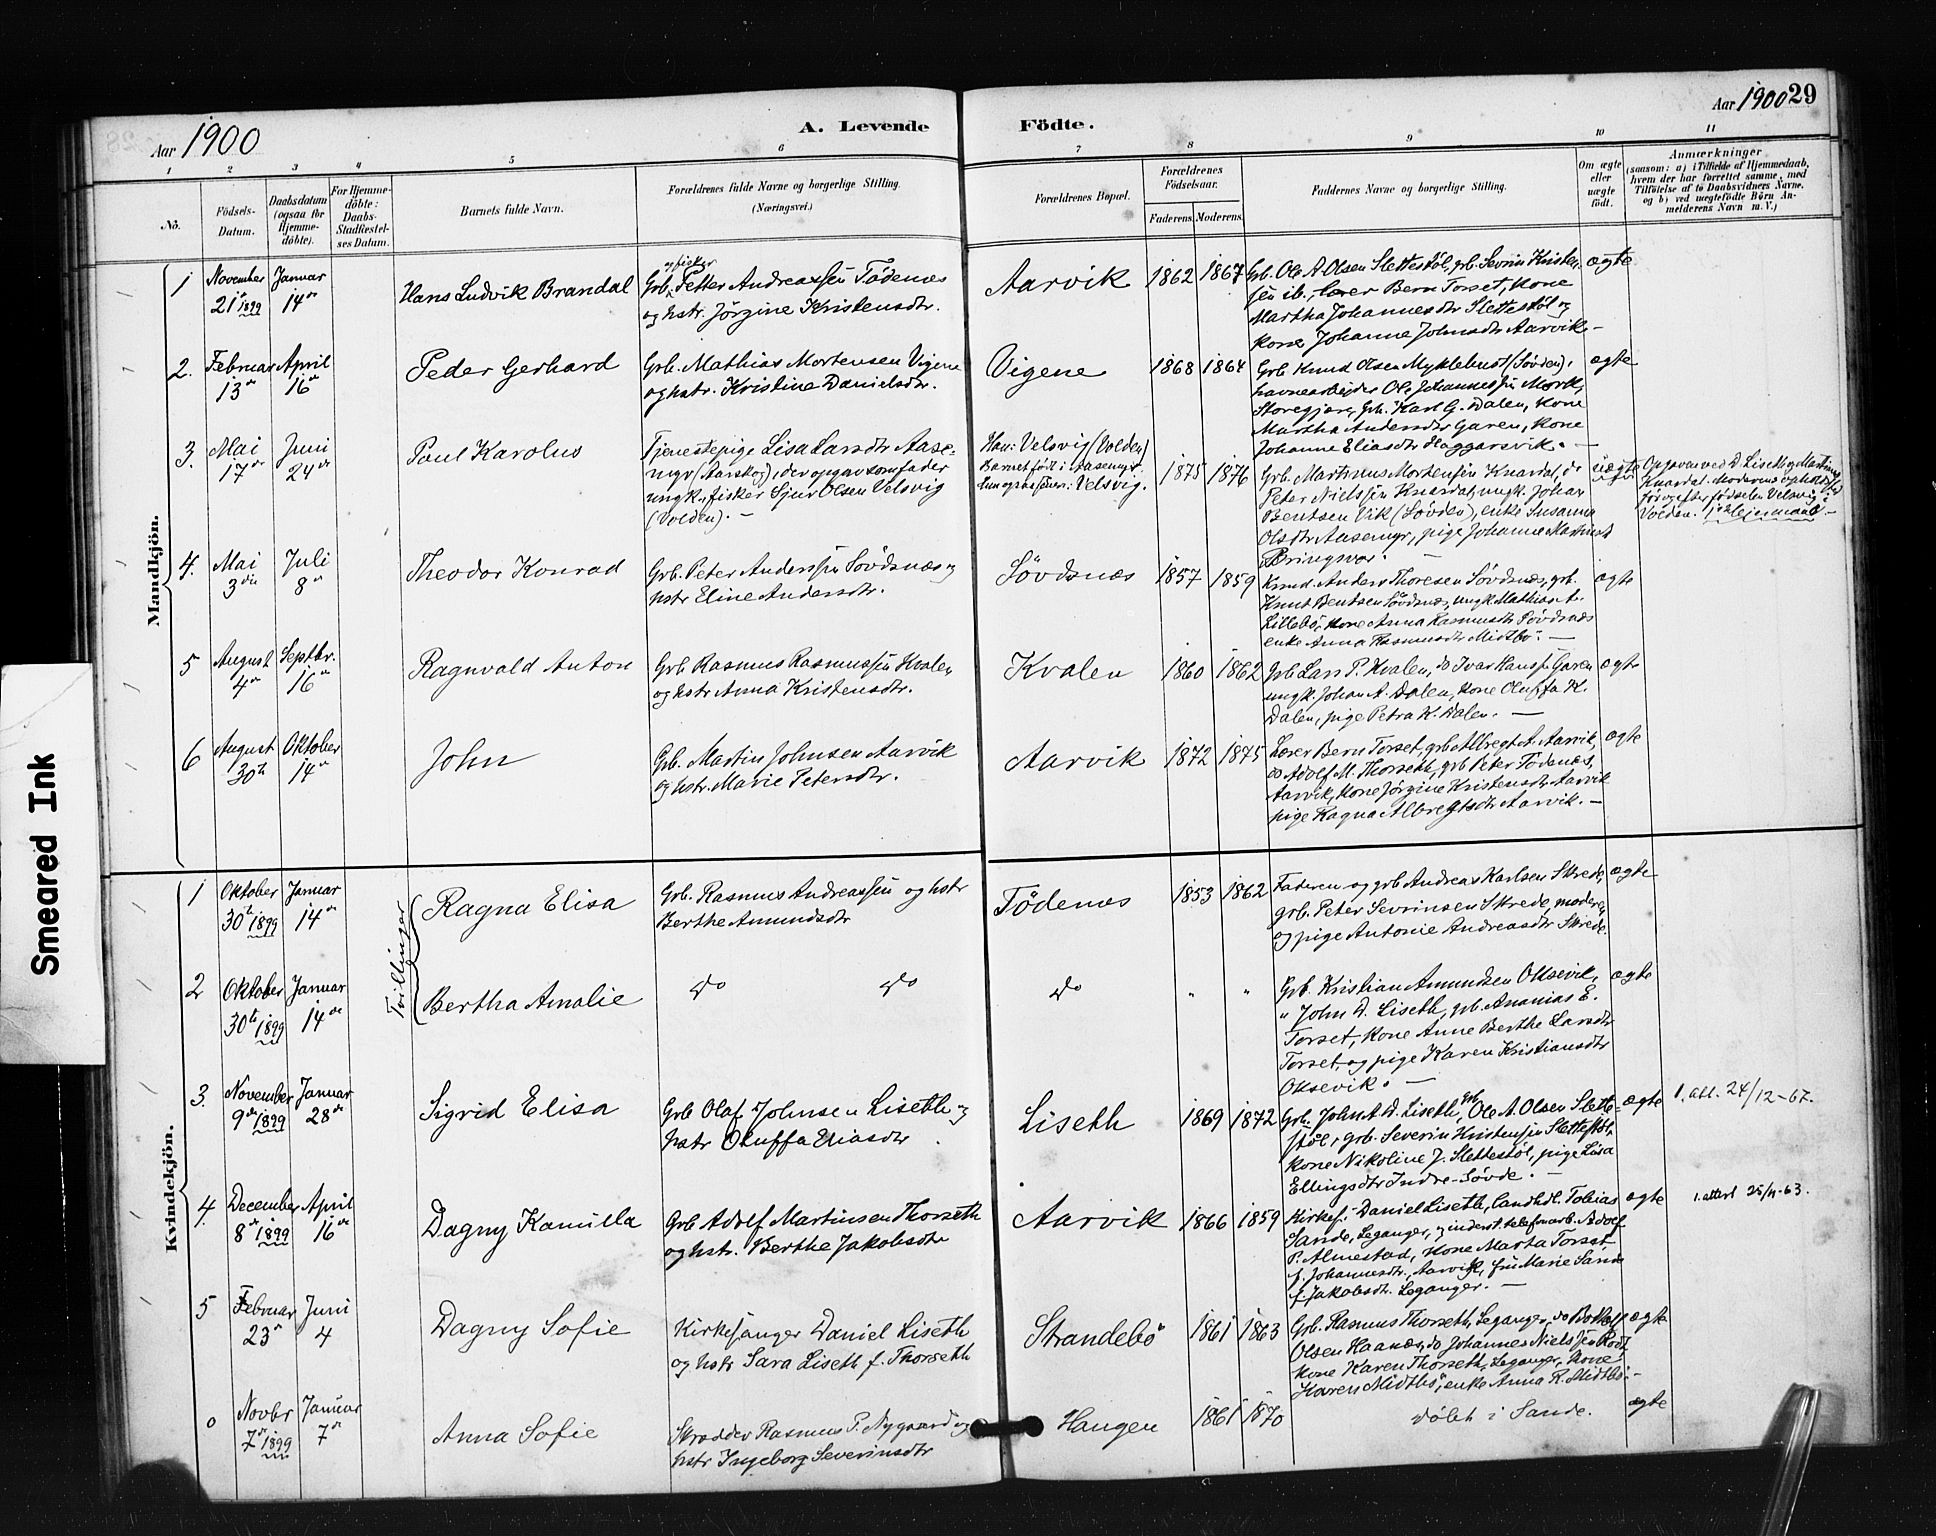 Aar 1900
A. Levende
Födte.
Aar 1900 29
1 2 3 4 5 6 7 8 9 10 11
No.
Födsels-Datum.
Daabsdatum (ogsaa for Hjemme-döbte).
For Hjemme-döbte: Daabs-Stadfæstel-ses Datum.
Barnets fulde Navn.
Forældrenes fulde Navne og borgerlige Stilling. (Næringsvei.)
Forældrenes Bopæl.
Forældrenes Födselsaar.
Faderens. Moderens.
Faddernes Navne og borgerlige Stilling.
Om ægte eller uægte födt.
Anmærkninger
(saasom: a) i Tilfælde af Hjemmedaab,
hvem der har forrettet samme, med
Tilföielse af to Daabsvidners Navne.
og b) ved uægtefödte Börn An-
melderens Navn m. V.)
Smeared Ink
Mandkjön.
1 November 21de 1899
Januar 14de
Hans Ludvik Brandal
og fisker
Grb. Petter Andreassen Tödenes
og hstr. Jörgine Kristensdtr.
Aarvik
1862 1867
Grb. Ole A. Olsen Slettestöl, grb. Sevrin Kristen-
sen ib., lærer Bern Torset, kone
Martha Johannesdtr Slettestöl og
kone Johanne Johnsdtr Aarvik. —
ægte
2. Februar 13de
April 16de
Peder Gerhard
Grb. Mathias Mortensen Vigene
og hstr. Kristine Danielsdtr.
Vigene
1868 1864
Grb. Knud Olsen Myklebust (Sövden),
havnearbeider Ole Johannessen Mork,
Storegjære, grb. Karl G. Dalen, kone
Martha Andersdtr Garen, kone
Johanne Eliasdtr Haggarsvik. —
ægte
3. Mai 17de
Juni 24de
Paul Karolus
Tjenestepige Lisa Larsdtr Aase-
myr (Aarskog), der opgav som fader
ungk. fisker Sjur Olsen Velsvig
(Volden). —
Han: Velsvig (Volden)
Barnet födt i Aasemyr.
Velsvig.
1875 1876
Grb. Martinus Mortensen Knardal, do
Peter Nielssen Knardal, ungk. Johan
Bentsen Vik (Sövden), enke Susanna
Olsdtr Aasemyr, pige Johanne Martinsdtr
Bringsvor. —
uægte
Opgaven ved D. Liseth og Martinus
Knardal. Moderens ophold
för og efter födselen Velsvig i
Volden. 1ste Leiermaal. —
4. Mai 3die
Juli 8de
Theodor Konrad
Grb. Peter Anderssen Sövdsnæs og
hstr Eline Andersdtr.
Sövdsnæs
1857 1859
Knud Anders Thoresen Sövdsnæs, grb.
Knut Bentsen Sövdsnæs, ungk. Mathias A.
Lillebö, kone Anna Rasmusdtr Sövdsnæs
enke Anna Rasmusdtr Midtbö. —
ægte
5 August 4de
Septbr. 16de
Ragnvald Anton
Grb. Rasmus Rasmussen Kvalen
og hstr Anna Kristensdtr.
Kvalen
1860 1862
Grb. Lars P. Kvalen, do Ivar Hanss. Garen
ungk. Johan A. Dalen, kone Oluffa K.
Dalen, pige Petra K. Dalen. —
ægte
6 August 30te
Oktober 14de
John
Grb. Martin Johnsen Aarvik
og hstr. Marie Petersdtr.
Aarvik
1872 1875
Lærer Bern Torset, grb. Albregt A. Aarvik,
do Adolf M. Thorseth, grb. Peter Tödenes,
Aarvik, kone Jörgine Kristensdtr Aarvik
pige Ragna Albregtsdtr Aarvik. —
ægte
Kvindekjön.
Tvillinger
1 Oktober 30te 1899
Januar 14de
Ragna Elisa
Grb. Rasmus Andreassen og hstr
Berthe Amundsdtr
Tödenes
1853 1862
Faderen og grb Andreas Karlsen Skrede,
grb. Peter Sevrinsen Skrede, moderen
og pige Antonie Andreasdtr Skrede.
ægte
2 Oktober 30te 1899
Januar 14de
Bertha Amalie
do do
do
" "
Grb. Kristian Amundsen Oksevik,
" John D. Liseth, grb. Ananias E.
Torset, kone Anne Berthe Larsdtr
Torset, og pige Karen Kristiansdtr
Oksevik. —
ægte
3. November 9de 1899
Januar 28de
Sigrid Elisa
Grb Olaf Johnsen Liseth og
hstr Oluffa Eliasdtr
Liseth
1869 1872
Grb. John A. D. Liseth, grb. Ole A. Olsen Slette-
stöl, grb. Severin Kristensen Slettestöl,
kone Nikoline J. Slettestöl, pige Lisa
Ellingsdtr Indre-Sövde. —
ægte
1. att. 24/12-67.
4. December 8de 1899
April 16de
Dagny Kamilla
Grb Adolf Martinsen Thorseth
og hstr. Berthe Jakobsdtr
Aarvik
1866 1859
Kirkes. Daniel Liseth, Landhdl. Tobias
Sande, Leganger, inderst. telefonarb. Adolf
P. Almestad, kone Marta Torset
f. Johannesdtr, Aarvik, fru Marie Sande
f. Jakobsdtr. Leganger. —
ægte
1. attest 25/4-63.
5 Februar 23de
Juni 4
Dagny Sofie
Kirkesanger Daniel Liseth
og hstr Sara Liseth f. Thorseth
Strandebö
1861 1863
Grb. Rasmus Thorseth, Leganger, do Bottolf
Olsen Haanæs, do Johannes Nielssen Rodt
kone Karen Thorseth, Leganger, kone
Karen Midtbö, enke Anna R. Midtbö. —
ægte
0 Novbr 7de 1899
Januar 7de
Anna Sofie
Skrædder Rasmus P. Nygaard og
hstr Ingeborg Severinsdtr
Haugen
1861 1870
Döbt i Sande.
ægte